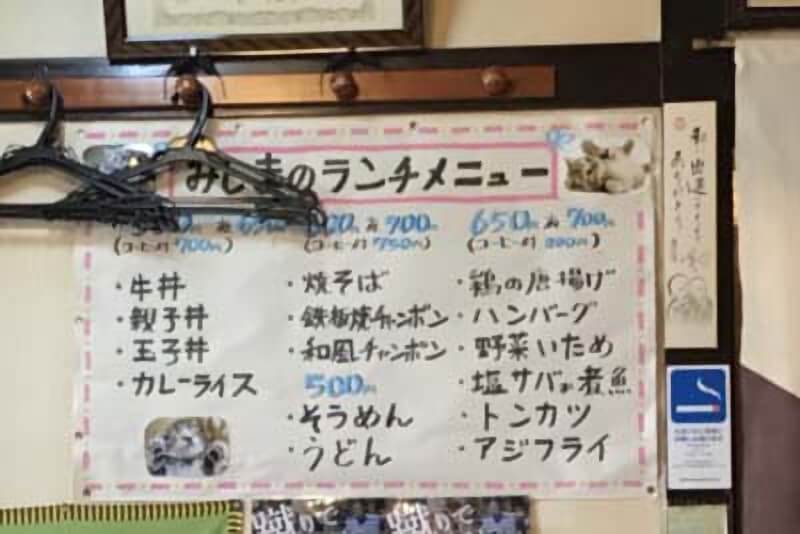 みしまのランチメニュー
700円
(コーヒー付 700円)
・牛丼
・親子丼
・玉子丼
・カレーライス
700円
(コーヒー付 750円)
・焼そば
・鉄板焼チャンポン
・和風チャンポン
500円
・そうめん
・うどん
650円 700円
(コーヒー付 800円)
・鶏の唐揚げ
・ハンバーグ
・野菜いため
・塩サバor煮魚
・トンカツ
・アジフライ
蹴りで 蹴りで